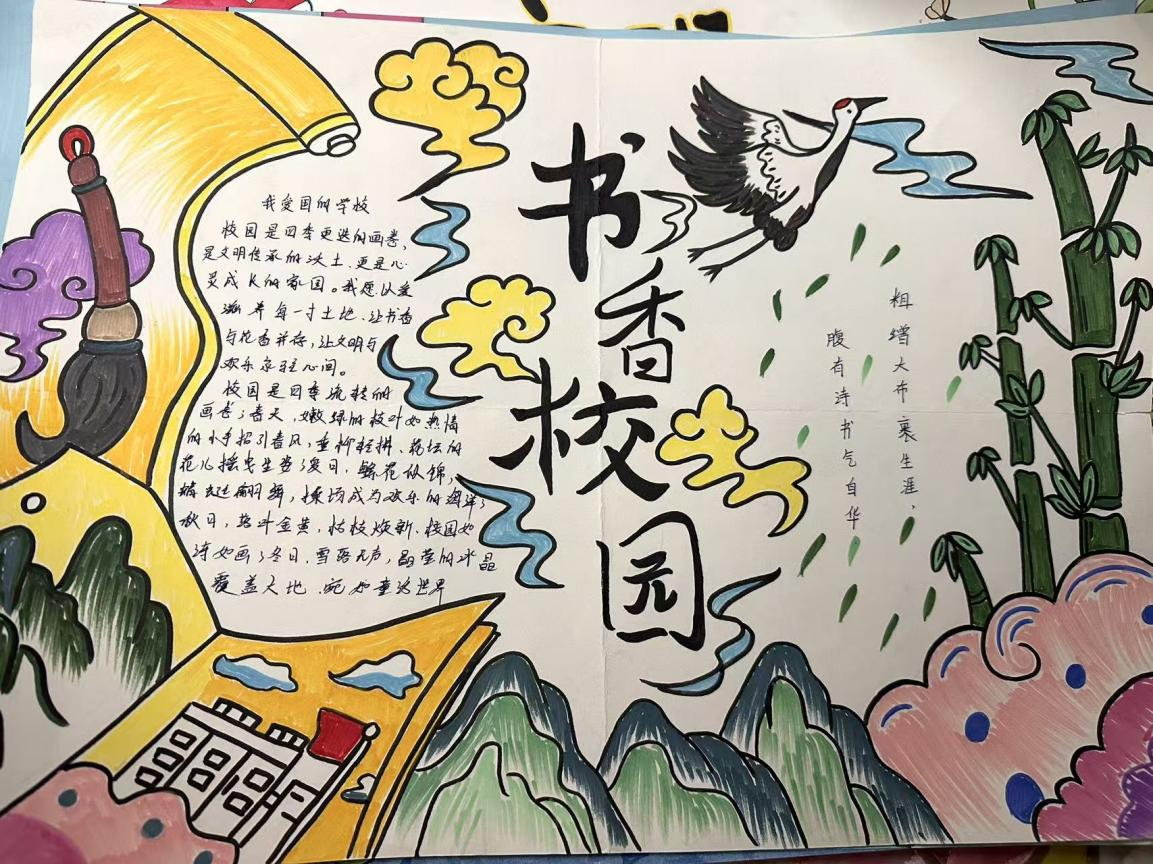 书香校园
我爱国的学校
校园是四季更迭的画卷，
是文明传承的沃土、更是心
灵成长的家园。我愿以爱
滋养每一寸土地、让书香
与花香并存，让文明与
欢乐常驻心间。
校园是四季流转的
画卷；春天，嫩绿的枝叶如热情
的小手招引春风，垂柳轻拂、花坛的
花儿摇曳生姿；夏日，繁花似锦，
蜻蜓翩舞，操场成为欢乐的海洋；
秋日，落叶金黄，枯枝焕新、校园如
诗如画；冬日、雪落无声，晶莹的冰晶
覆盖大地、宛如童话世界
粗缯大布裹生涯，
腹有诗书气自华